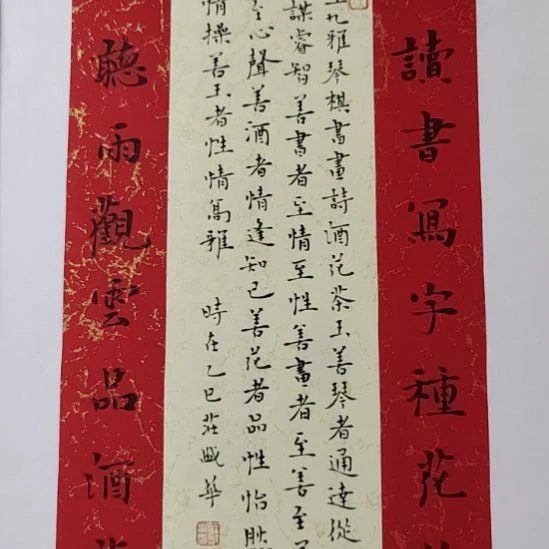 讀書寫字種花
九雅琴棋書畫詩酒花茶玉善琴者通達從
謀睿智善書者至情至性善畫者至善至
至心聲善酒者情逢知己善花者品性怡
情操善玉者性情高雅
時在乙巳莊華
聽雨觀雲品酒